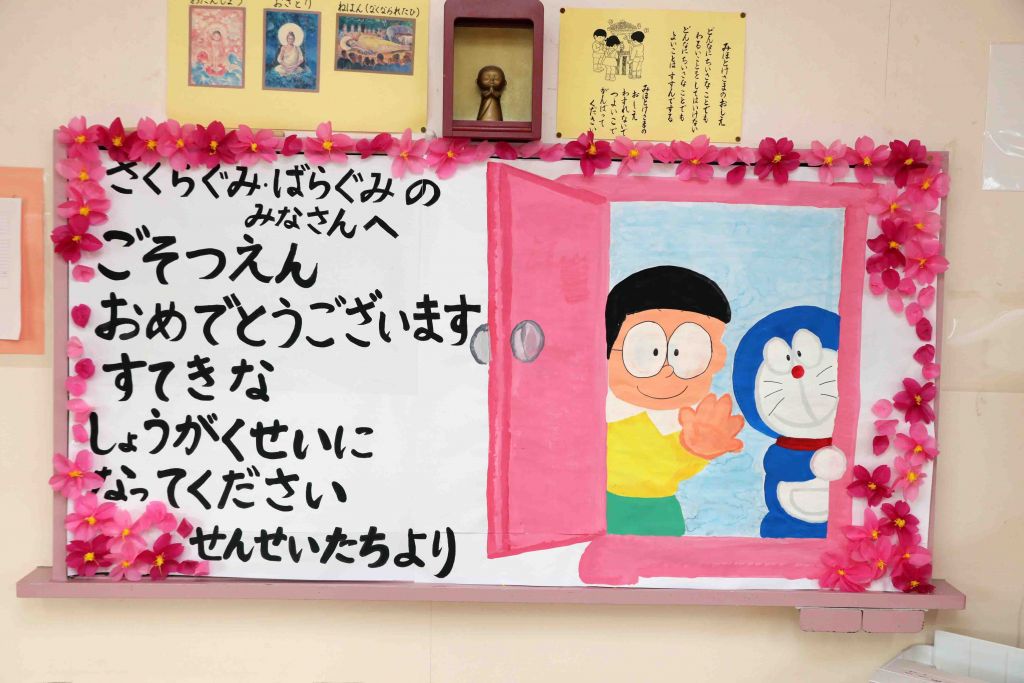 おたんじょう
おさとり
ねはん(なくなられたひ)
みほとけさまのおしえ
どんなにちいさなことでも
わるいことをしてはいけない
どんなにちいさなことでも
よいことはすすんでする
みほとけさまの
おしえ
わすれないで
つよいこで
がんばって
ください
さくらぐみ・ばらぐみの
みなさんへ
ごそつえん
おめでとうございます
すてきな
しょうがくせいに
なってください
せんせいたちより